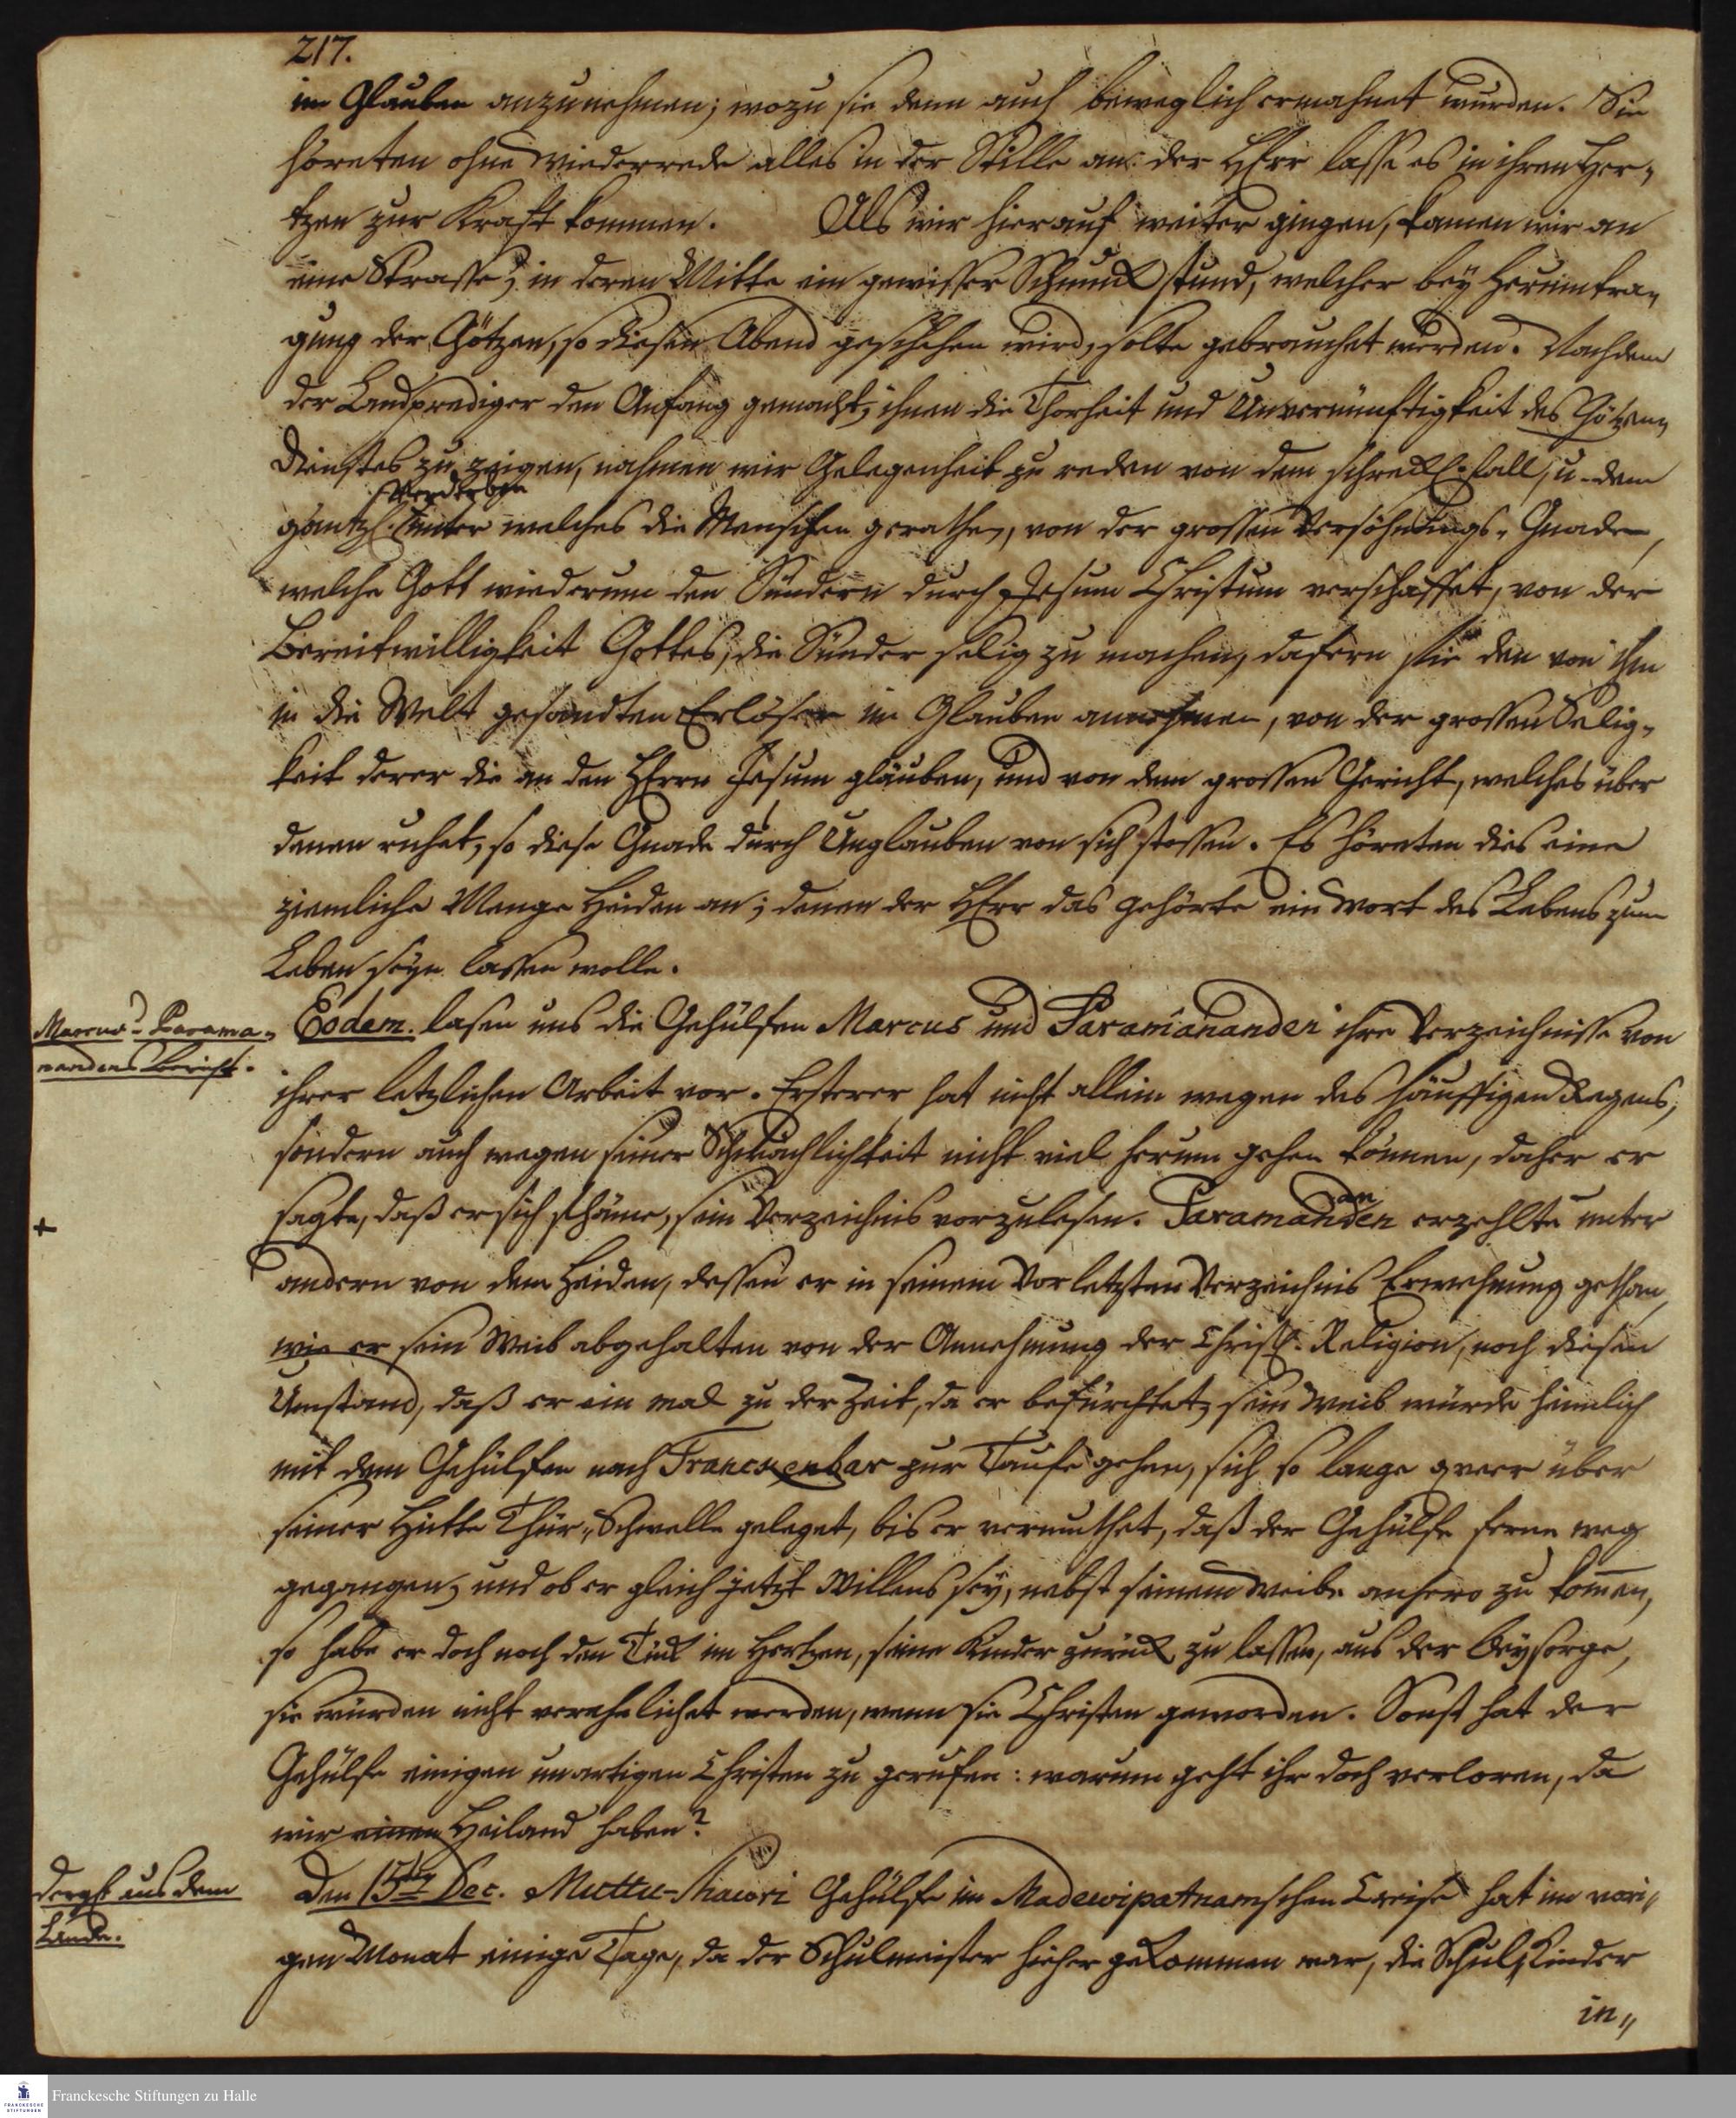 217.
im Glauben anzunehmen; wozu sie denn auch beweglich ermahnet wurden. Sie
höreten ohne Wiederrede alles in der Stille an: der HErr lasse es in ihren Her-
tzen zur Kraft kommen. Als wir hierauf weiter gingen, kamen wir an
eine Strasse, in deren Mitte ein gewisser Schmuck stund, welcher bey Herumtra-
gung der Götzen, so diesen Abend geschehen wird, solte gebrauchet werden. Nachdem
der Landprediger den Anfang gemacht, ihnen die Thorheit und Unvernünftigkeit des Götzen-
Dienstes zu zeigen, nahmen wir Gelegenheit zu reden von dem schreckl. Fall, u. dem
Verderben
gäntzl. unter welches die Menschen gerathen, von der grossen Versöhnungs-Gnade,
welche Gott wiederum den Sündern durch Jesum Christum verschaffet, von der
Bereitwilligkeit Gottes, die Sünder selig zu machen, dafern sie den von ihm
in die Welt gesandten Erlöser im Glauben annehmen, von der grossen Selig-
keit derer die an den HErrn Jesum gläuben, und von dem grossen Gericht, welches über
denen ruhet, so diese Gnade durch Unglauben von sich stossen. Es höreten dies eine
ziemliche Menge Heiden an; denen der HErr das gehörte ein Wort des Lebens zum
Leben seyn lassen wolle.
Marcus Parama-
nandens Bericht.
Eodem. lasen uns die Gehülfen Marcus und Paramananden ihre Verzeichnisse von
ihrer letzlichen Arbeit vor. Ersterer hat nicht allein wegen des häuffigen Regens,
sondern auch wegen seiner Schwachlichkeit nicht viel herum gehen können, daher er
sagte, daß er sich schäme, sein Verzeichnis vorzulesen. Paramananden erzehlte unter
+
andern von dem Heiden, dessen er in seinem vorletzten Verzeichnis Erwehnung gethan,
wie er sein Weib abgehalten von der Annehmung der Christl. Religion, noch diesen
Umstand, daß er ein mal zu der Zeit, da er befürchtet, sein Weib würde heimlich
mit dem Gehülfen nach Tranckenbar zur Taufe gehen, sich so lange qveer über
seiner Hütte Thür-Schwelle geleget, bis er vermuthet, daß der Gehülfe ferne weg
gegangen, und ob er gleich jetzt Willens sey, nebst seinem Weibe anhero zu kommen,
so habe er doch noch den Tück im Hertzen, seine Kinder zurück zu lassen, aus der Beysorge,
sie würden nicht verehelichet werden, wenn sie Christen geworden. Sonst hat der
Gehülfe einigen unartigen Christen zu gerufen: warum geht ihr doch verloren, da
wir einen Heiland haben?
dergl. aus dem
Lande.
Den 15ten Dec. Muttu-Chawri Gehülfe im Madewipatnamschen Creise hat im vori-
gen Monat einige Tage, da der Schulmeister hieher gekommen war, die Schul-Kinder
in-
Franckesche Stiftungen zu Halle